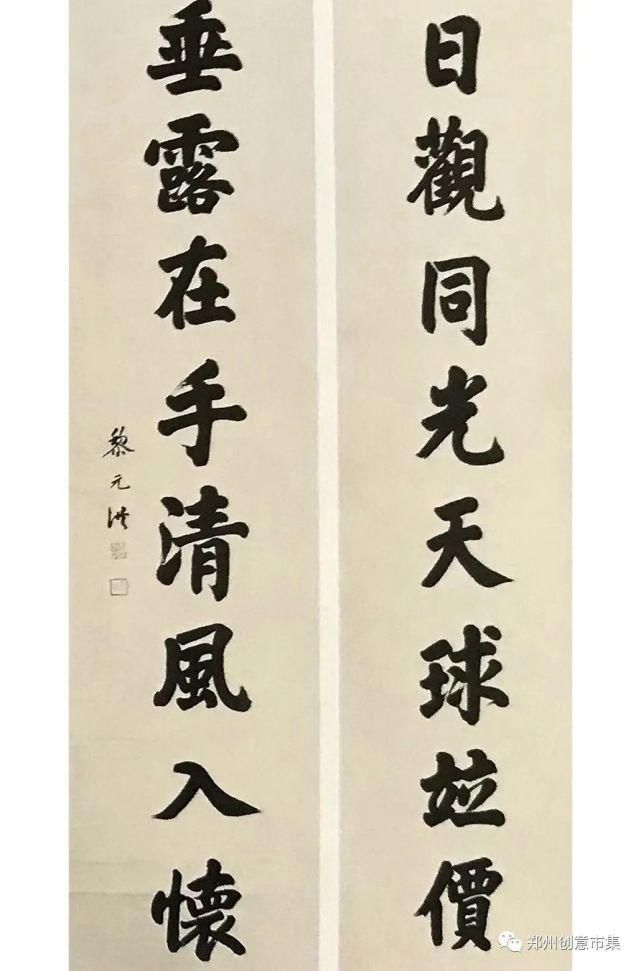 日觀同光天球竝價
垂露在手清風入懷
黎元洪
郑州创意市集